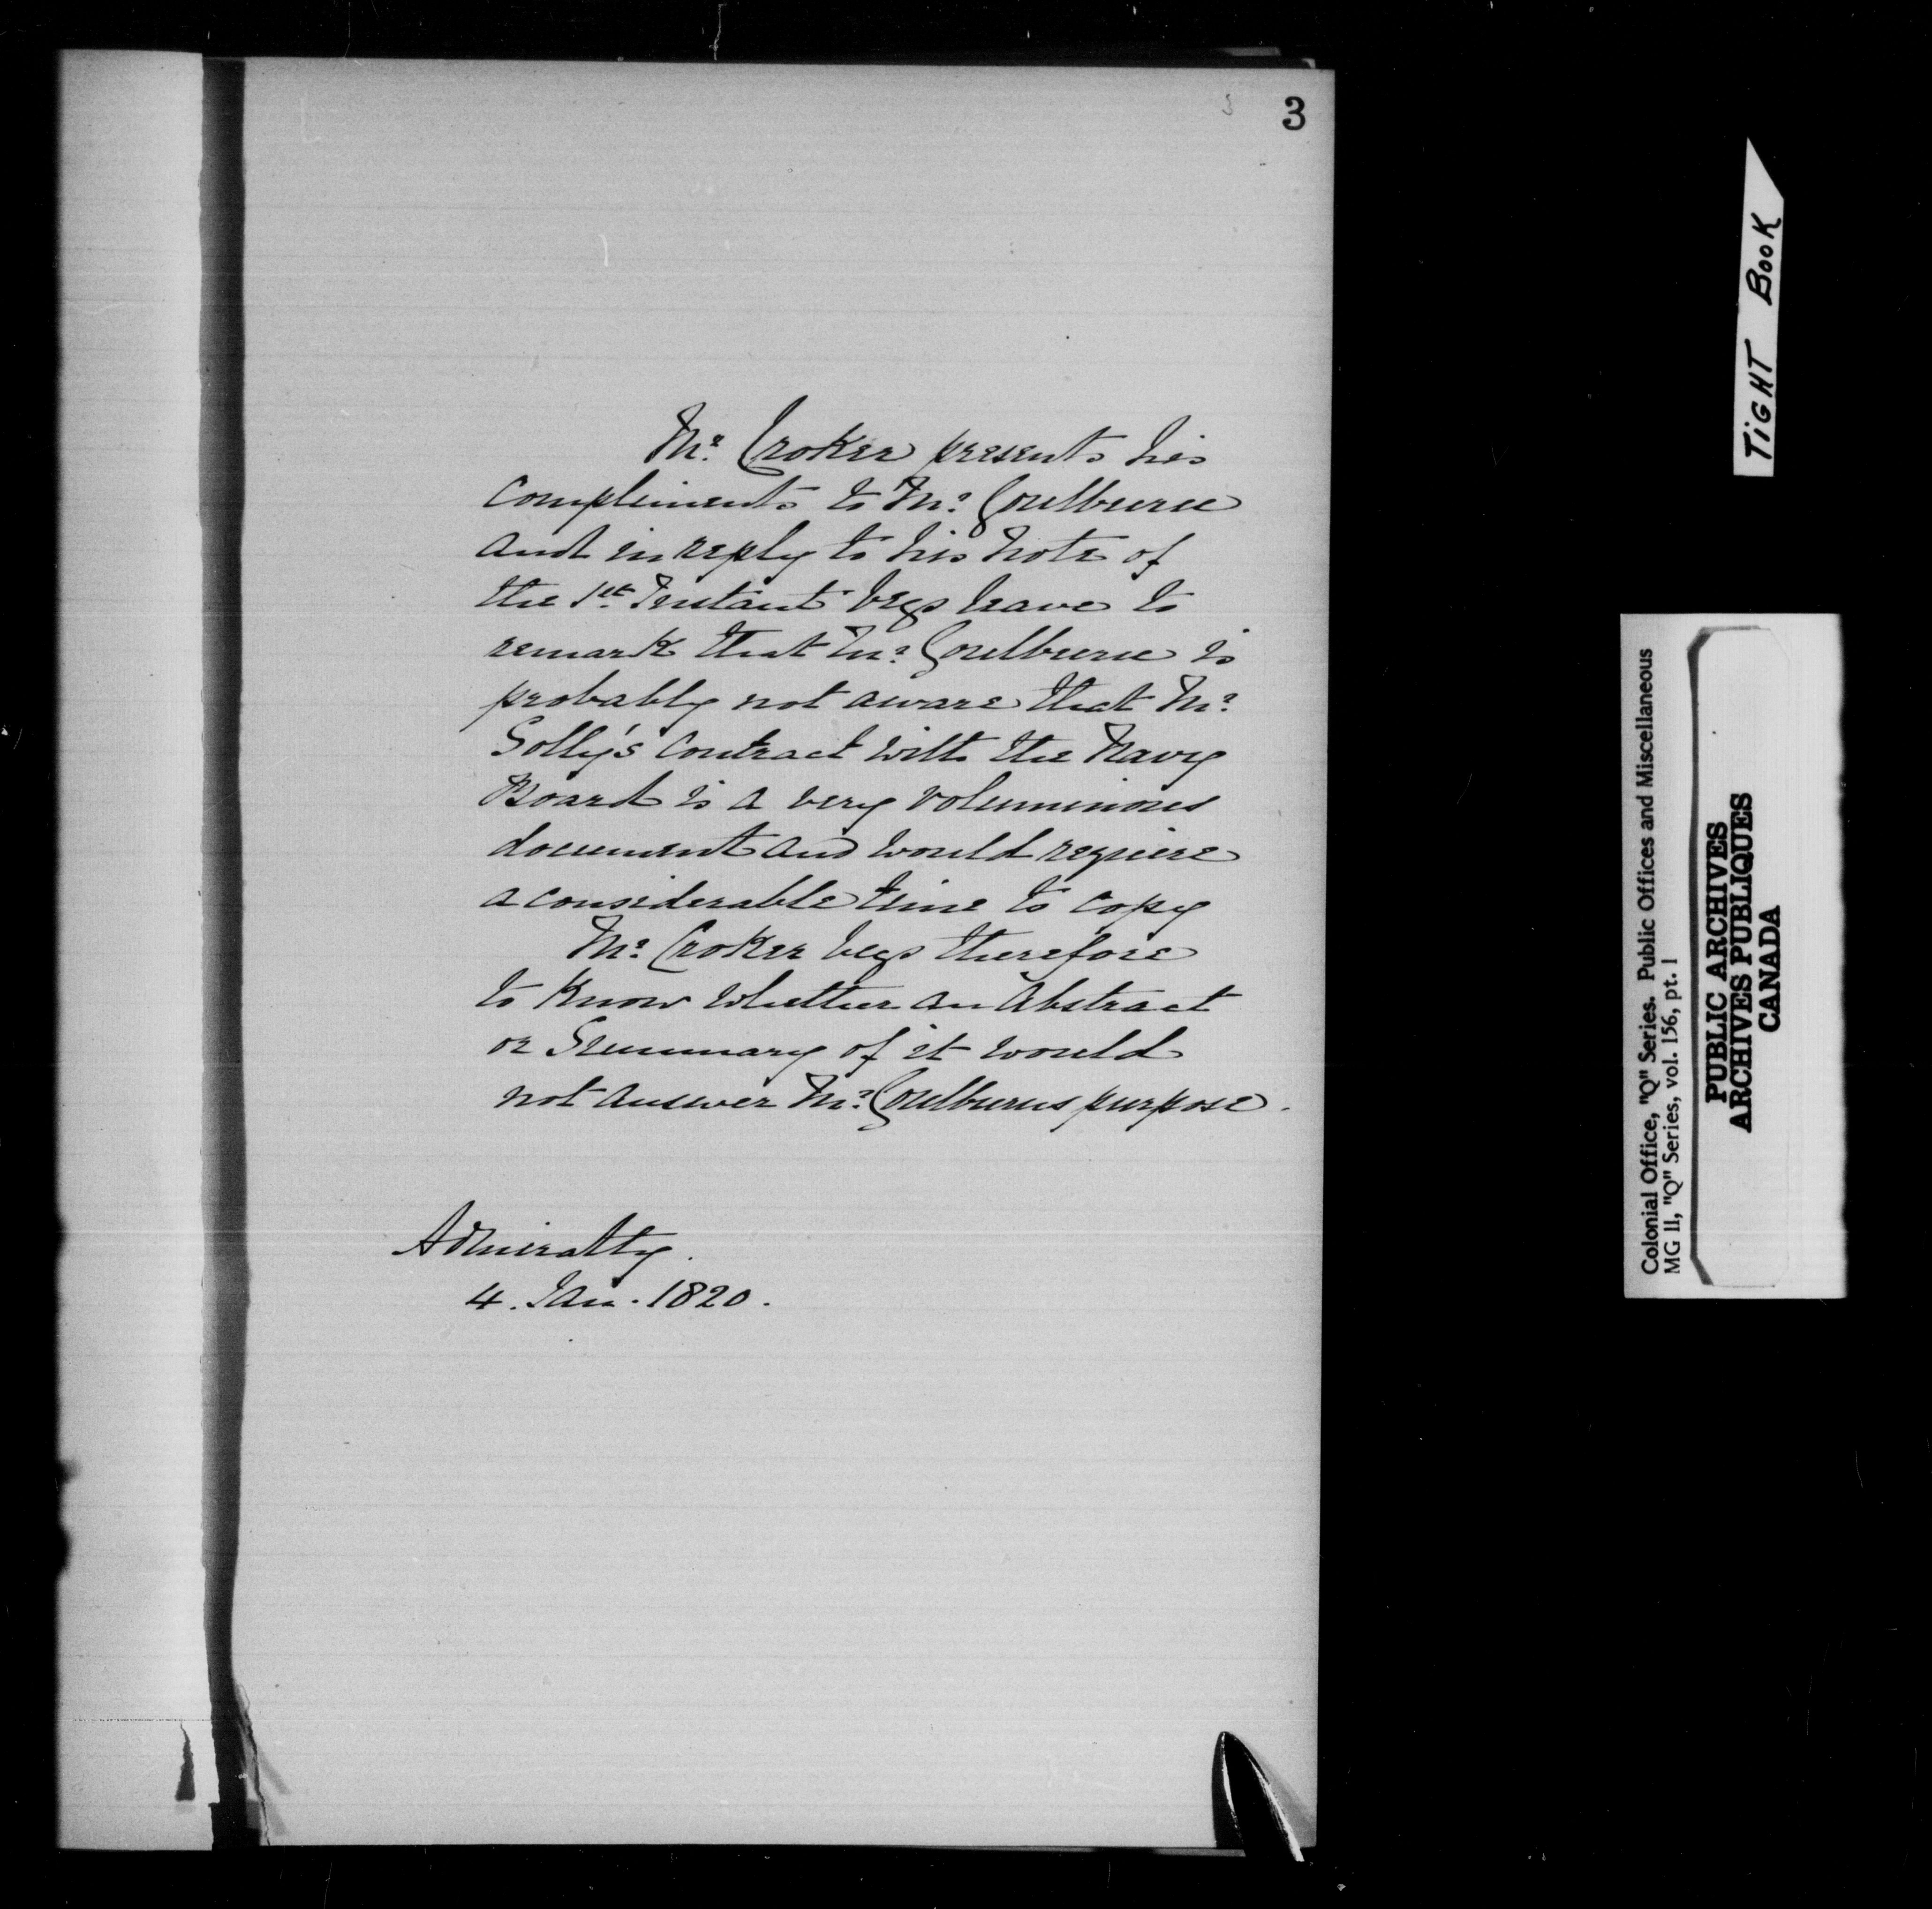 3
Mr. Croker presents his
compliments to Mr. Goulburn
and in reply to his note of
the 1st. Instant begs leave to
remark that Mr. Goulburn is
probably not aware that Mr.
Solly's contract with the Navy
Board is a very voluminous
document and would require
a considerable time to copy
Mr. Croker begs therefore
to know whether an Abstract
or Summary of it would
not answer Mr. Goulburns purpose.
Admiralty.
4. Jan. 1820.
TIGHT BOOK
Colonial Office, "Q" Series. Public Offices and Miscellaneous
MG 11, "Q" Series, vol. 156, pt. 1
PUBLIC ARCHIVES
ARCHIVES PUBLIQUES
CANADA